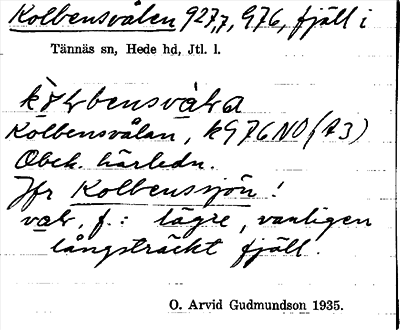 Kolbensvålen 927,7, 976, fjäll i
Tännäs sn, Hede hd, Jtl. l.
Kolbensvålan, k976NO(A3)
Obek. härledn.
Jfr Kolbenssjön!
val, f.: lägre, vanligen
långsträckt fjäll.
O. Arvid Gudmundson 1935.